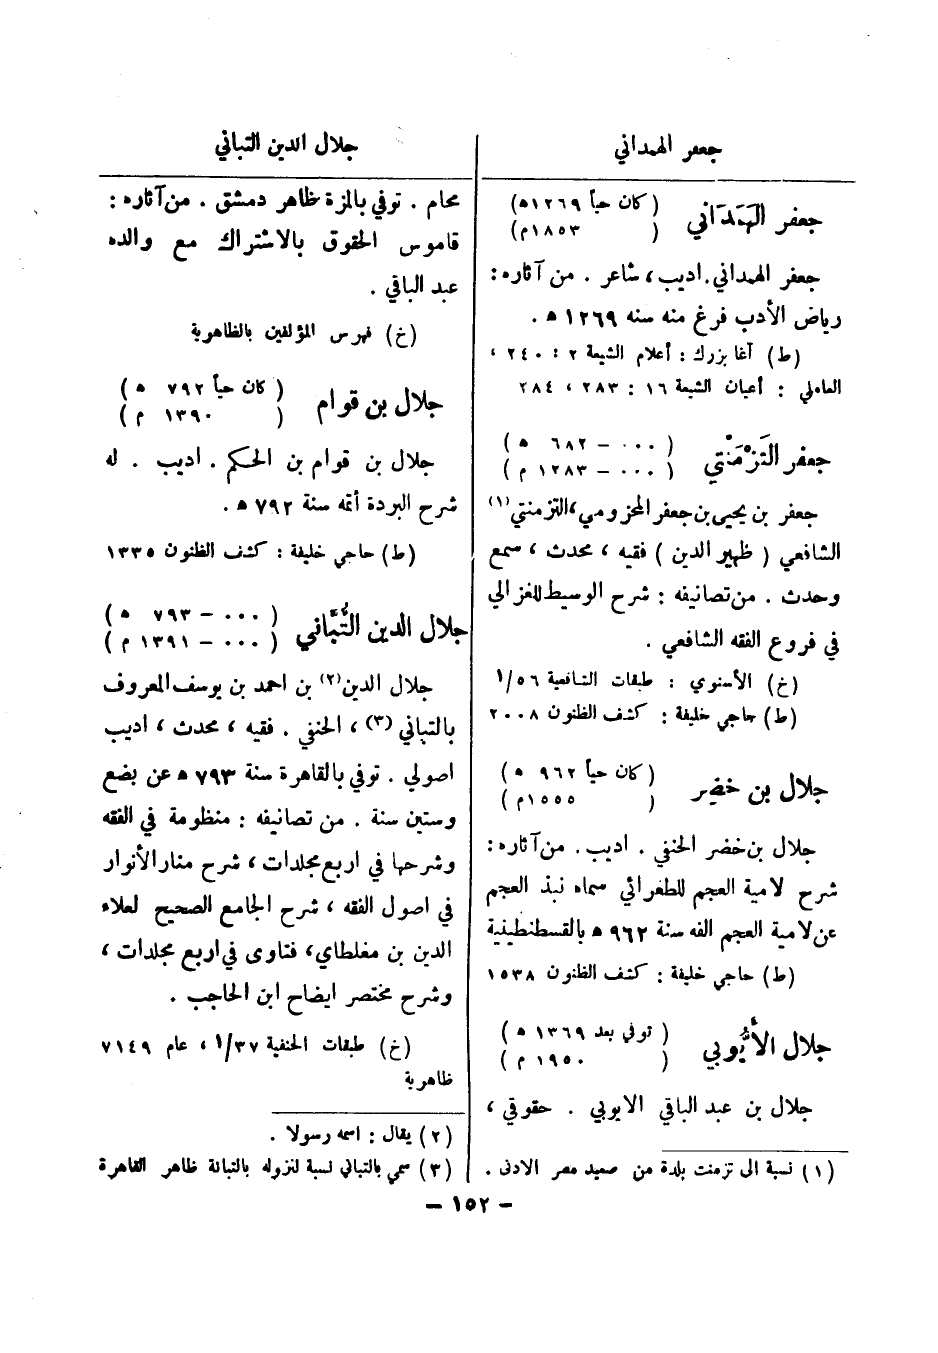 جعفر الهمداني
جعفر الهَمَدَاني
( كان حياً ١٢٦٩ه)
( ١٨٥٣م)
جعفر الهمداني . اديب ، شاعر . من آثاره :
رياض الأدب فرغ منه سنه ١٢٦٩ ه .
(ط) آغا بزرك : أعلام الشيعة ٢ : ٢٤٠ ،
العاملي : أعيان الشيعة ١٦ : ٢٨٣ ، ٢٨٤
جعفر التَزْمَنْتي
( ٠٠٠ – ٦٨٢ ه )
( ٠٠٠ – ١٢٨٣ م )
جعفر بن يحيى بن جعفر المخزومي ، التزمنتي (١)
الشافعي ( ظهير الدين ) فقيه ، محدث ، سمع
وحدث . من تصانيفه : شرح الوسيط للغزالي
في فروع الفقه الشافعي .
(خ) الأسنوي : طبقات الشافعية ١/٥٦
(ط) حاجي خليفة : كشف الظنون ٢٠٠٨
جلال بن خضِر
( كان حياً ٩٦٢ ه )
( ١٥٥٥م )
جلال بن خضر الحنفي . اديب . من آثاره :
شرح لامية العجم للطغرائي سماه نبذ العجم
عن لامية العجم الفه سنة ٩٦٢ ه بالقسطنطينية
(ط) حاجي خليفة : كشف الظنون ١٥٣٨
جلال الأيُّوبي
( توفي بعد ١٣٦٩ ه )
( ١٩٥٠ م )
جلال بن عبد الباقي الايوبي . حقوقي ،
(١) نسبة الى تزمنت بلدة من صعيد مصر الادنى .
جلال الدين التباني
محام . توفي بالمزة ظاهر دمشق . من آثاره :
قاموس الحقوق بالاشتراك مع والده
عبد الباقي .
(خ) فهرس المؤلفين بالظاهرية
جلال بن قوام
( كان حياً ٧٩٢ ه )
( ١٣٩٠ م )
جلال بن قوام بن الحكم . اديب . له
شرح البردة أتمه سنة ٧٩٢ ه .
(ط) حاجي خليفة : كشف الظنون ١٣٣٥
جلال الدين التُّبَّاني
( ٠٠٠ – ٧٩٣ ه )
( ٠٠٠ – ١٣٩١ م )
جلال الدين (٢) بن احمد بن يوسف المعروف
بالتباني (٣) ، الحنفي . فقيه ، محدث ، اديب
اصولي . توفي بالقاهرة سنة ٧٩٣ ه عن بضع
وستين سنة . من تصانيفه : منظومة في الفقه
وشرحها في اربع مجلدات ، شرح منار الأنوار
في اصول الفقه ، شرح الجامع الصحيح لعلاء
الدين بن مغلطاي ، فتاوى في اربع مجلدات ،
وشرح مختصر ايضاح ابن الحاجب .
(خ) طبقات الحنفية ١/٣٧ ، عام ٧١٤٩
ظاهرية
(٢) يقال : اسمه رسولا .
(٣) سمي بالتباني نسبة لنزوله بالتبانة ظاهر القاهرة
– ١٥٢ –